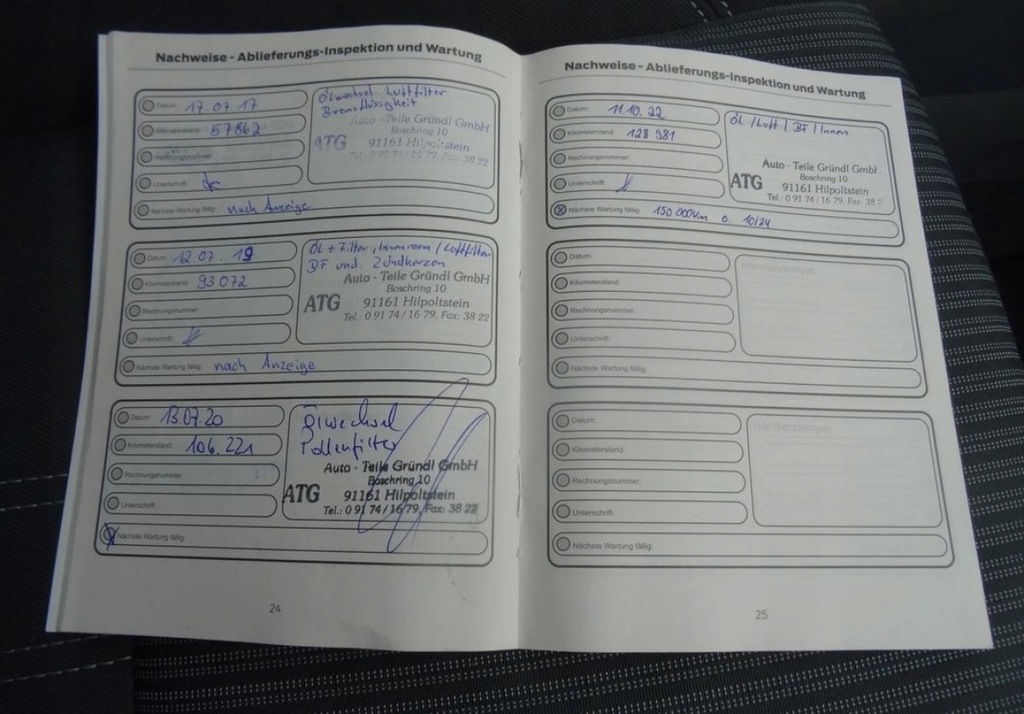 Nachweise - Ablieferungs-Inspektion und Wartung
Datum: 17.07.17
Kilometerstand: 57862
Rechnungsnummer:
Unterschrift:
Nächste Wartung fällig: nach Anzeige
Ölwechsel Luftfilter
Bremsflüssigkeit
Auto - Teile Gründl GmbH
Boschring 10
ATG 91161 Hilpoltstein
Tel.: 0 91 74 / 16 79, Fax: 38 22
Datum: 12.07.19
Kilometerstand: 93072
Rechnungsnummer:
Unterschrift:
Nächste Wartung fällig: nach Anzeige
ÖL + Filter, Innenraum / Luftfilter
BF und Zündkerzen
Auto - Teile Gründl GmbH
Boschring 10
ATG 91161 Hilpoltstein
Tel.: 0 91 74 / 16 79, Fax: 38 22
Datum: 13.07.20
Kilometerstand: 106.221
Rechnungsnummer:
Unterschrift:
Nächste Wartung fällig:
Ölwechsel
Pollenfilter
Auto - Teile Gründl GmbH
Boschring 10
ATG 91161 Hilpoltstein
Tel.: 0 91 74 / 16 79, Fax: 38 22
24
Nachweise - Ablieferungs-Inspektion und Wartung
Datum: 11.10.22
Kilometerstand: 128 981
Rechnungsnummer:
Unterschrift:
Nächste Wartung fällig: 150 000km o. 10/24
ÖL / Luft / BF / Innen
Auto - Teile Gründl GmbH
Boschring 10
ATG 91161 Hilpoltstein
Tel.: 0 91 74 / 16 79, Fax: 38 2
Datum:
Kilometerstand:
Rechnungsnummer:
Unterschrift:
Nächste Wartung fällig:
Händlerstempel
Datum:
Kilometerstand:
Rechnungsnummer:
Unterschrift:
Nächste Wartung fällig:
Händlerstempel
25